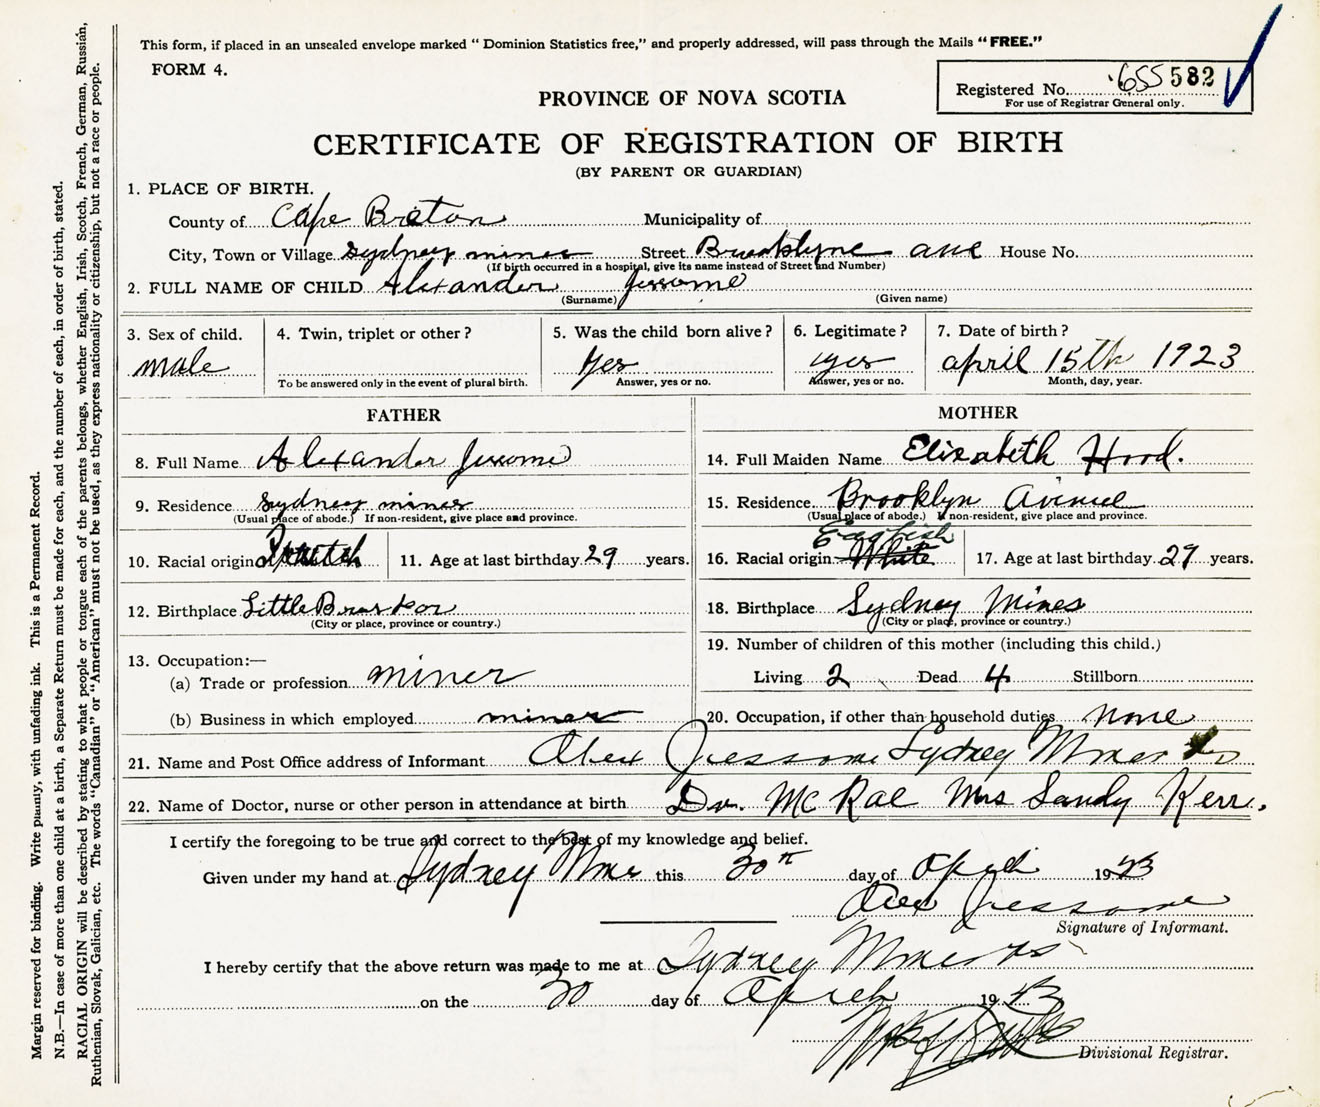 This form, if placed in an unsealed envelope marked “Dominion Statistics free,” and properly addressed, will pass through the Mails “FREE.”
FORM 4.
Registered No. 655 582
For use of Registrar General only.
PROVINCE OF NOVA SCOTIA
CERTIFICATE OF REGISTRATION OF BIRTH
(BY PARENT OR GUARDIAN)
1. PLACE OF BIRTH.
County of Cape Breton Municipality of
City, Town or Village Sydney mines Street Brooklyne ave House No.
(If birth occurred in a hospital, give its name instead of Street and Number)
2. FULL NAME OF CHILD Alexander Jessome
(Surname) (Given name)
3. Sex of child. 4. Twin, triplet or other? 5. Was the child born alive? 6. Legitimate? 7. Date of birth?
male yes yes april 15th 1923
To be answered only in the event of plural birth. Answer, yes or no. Answer, yes or no. Month, day, year.
FATHER MOTHER
8. Full Name Alexander Jessome 14. Full Maiden Name Elizabeth Hood.
9. Residence Sydney mines 15. Residence Brooklyn Avenue
(Usual place of abode.) If non-resident, give place and province. (Usual place of abode.) If non-resident, give place and province.
English
10. Racial origin 11. Age at last birthday 29 years. 16. Racial origin White 17. Age at last birthday 29 years.
12. Birthplace Little 18. Birthplace Sydney Mines
(City or place, province or country.) (City or place, province or country.)
13. Occupation:— 19. Number of children of this mother (including this child.)
(a) Trade or profession miner Living 2 Dead 4 Stillborn
(b) Business in which employed miner 20. Occupation, if other than household duties none
21. Name and Post Office address of Informant Alex Jessome Sydney Mines
22. Name of Doctor, nurse or other person in attendance at birth Dr. McRae Mrs Sandy Kerr.
I certify the foregoing to be true and correct to the best of my knowledge and belief.
Given under my hand at Sydney Mines this 30th day of April 1923
Alex Jessome
Signature of Informant.
I hereby certify that the above return was made to me at Sydney Mines NS
on the 30 day of April 1923
Divisional Registrar.
Margin reserved for binding. Write plainly, with unfading ink. This is a Permanent Record.
N.B.—In case of more than one child at a birth, a Separate Return must be made for each, and the number of each, in order of birth, stated.
RACIAL ORIGIN will be described by stating to what people or tongue each of the parents belongs, whether English, Irish, Scotch, French, German, Russian,
Ruthenian, Slovak, Galician, etc. The words “Canadian” or “American” must not be used, as they express nationality or citizenship, but not a race or people.